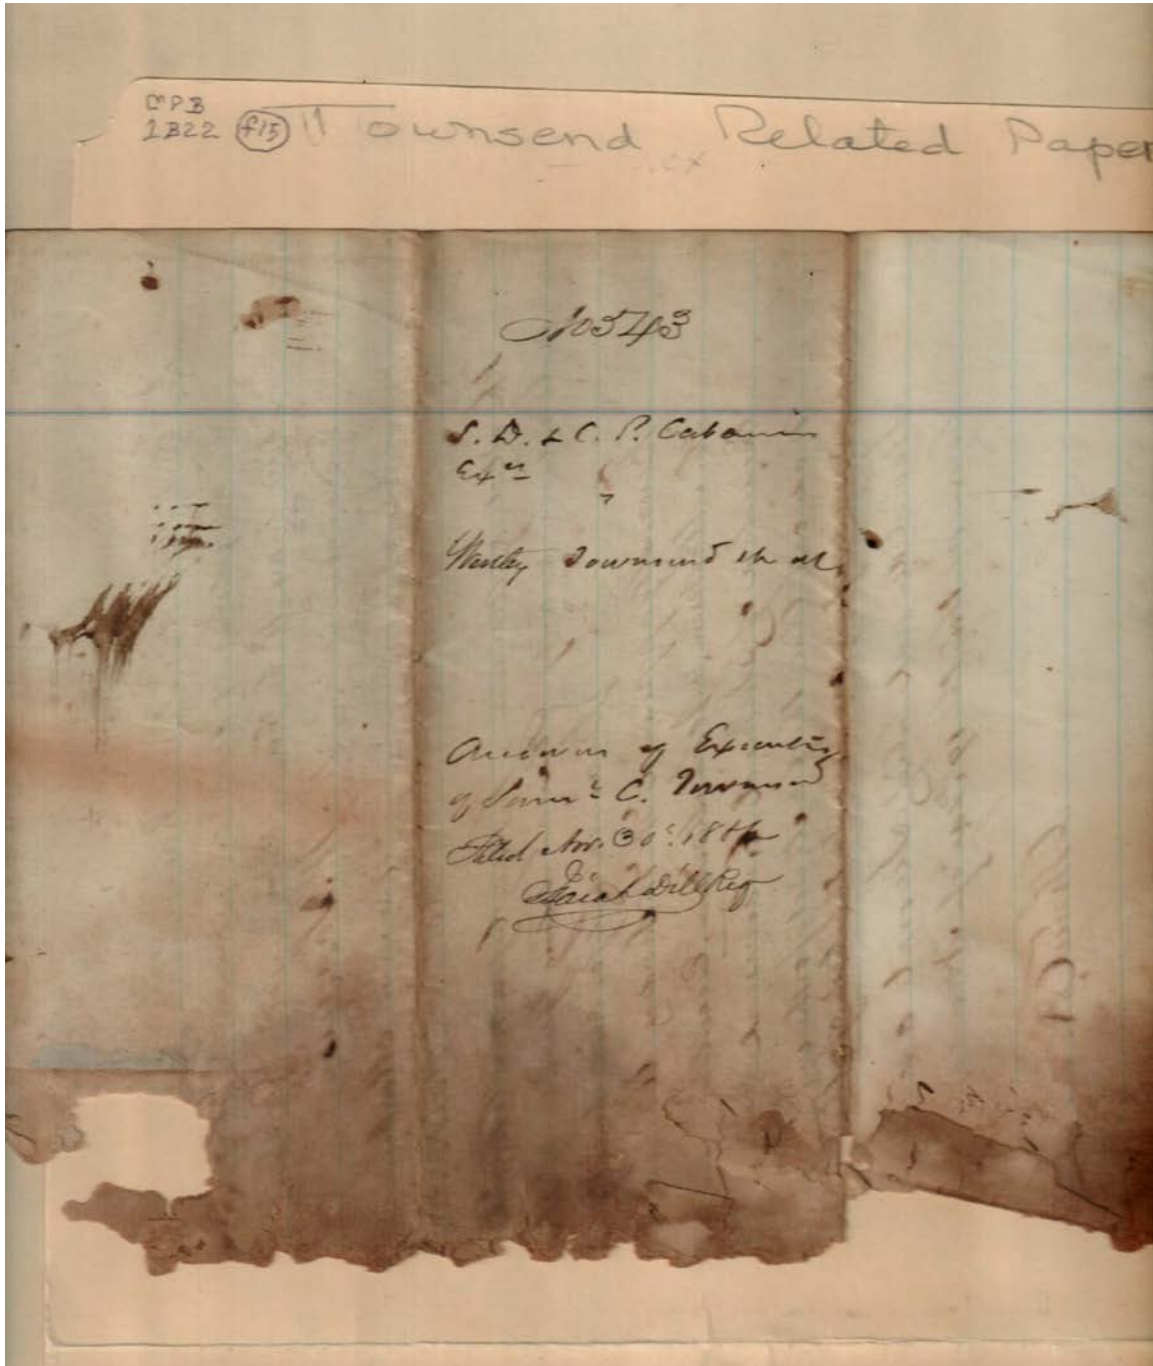 CPB
1B22 f15 Townsend Related Paper
No 543
S. D. & C. P. Cabaniss
Exrs
Wesley Townsend et al
of Executors
of Saml C. Townsend
Filed Nov. 30th
Isaiah Dill Reg